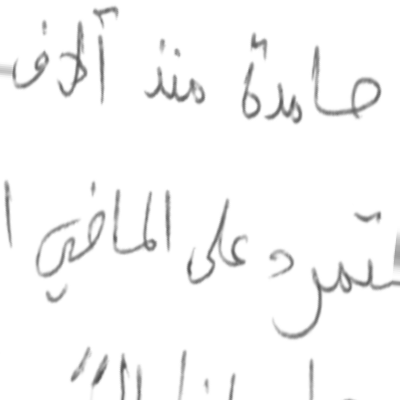 صامدة منذ آلاف
تتمرد على الماضي ا